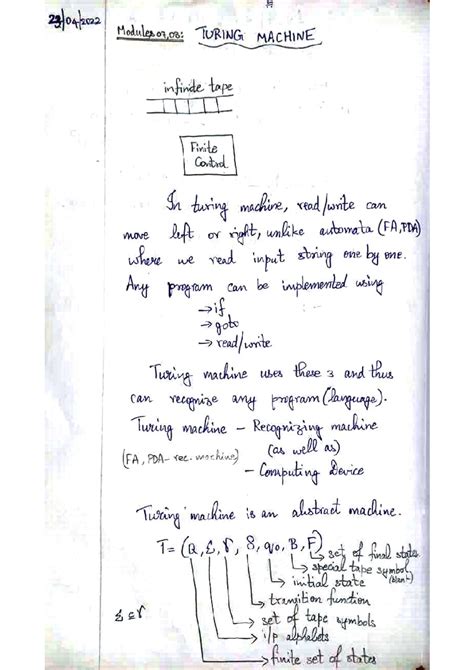 23/04/2022
Modules 07,08: TURING MACHINE
infinite tape
Finite
Control
In turing machine, read/write can
move left or right, unlike automata (FA, PDA)
where we read input string one by one.
Any program can be implemented using
→ if
→ goto
→ read/write
Turing machine uses these 3 and thus
can recognize any program (language).
Turing machine - Recognizing machine
(as well as)
(FA, PDA - rec. machine)
- Computing Device
Turing machine is an abstract machine.
T = (Q, Σ, Γ, δ, q0, B, F)
→ set of final states
→ special tape symbol
(blank)
→ initial state
→ transition function
Σ ⊆ Γ
→ set of tape symbols
→ i/p alphabets
→ finite set of states